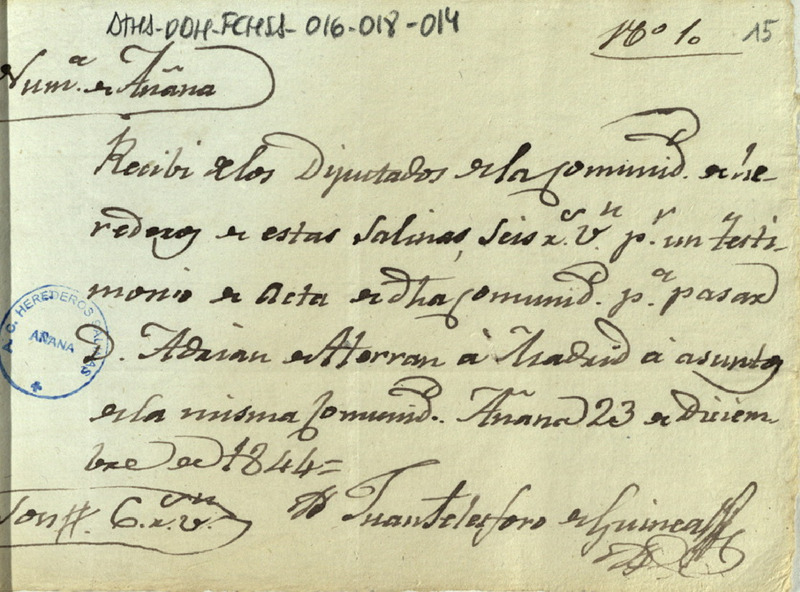 ATHS-DOH-FCHSS-016-018-014
Nº 1º 15
Num.ª de Añana
Recibi de los Diputados de la Comunid. de he-
rederos de estas Salinas, seis r.ˢ v.ⁿ p.ʳ un testi-
monio de Acta de dha Comunid. p.ª pasar
D. Adrian de Herran à Madrid à asuntos
de la misma Comunid. Añana 23 de Diciem-
bre de 1844=
Son #. 6. r.ˢ v.ⁿ Juan Telesforo de Guinea
HEREDEROS SALINAS
AÑANA